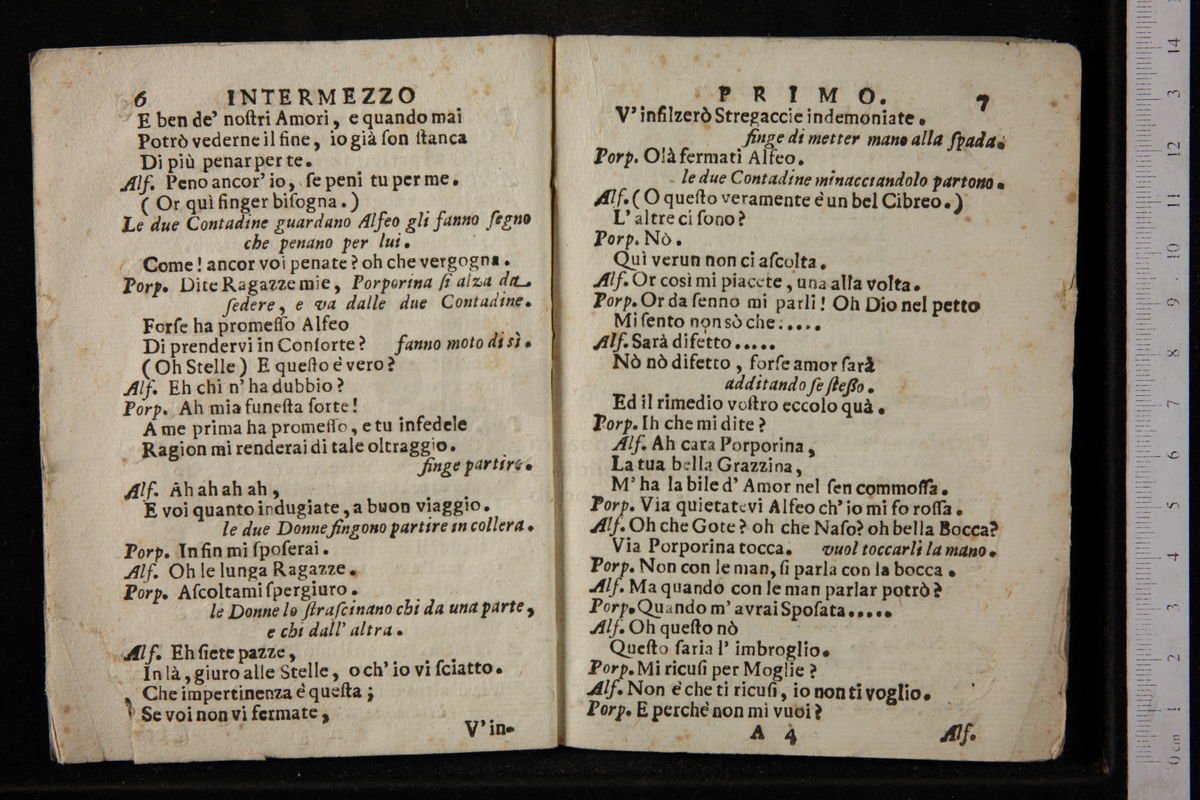 6 INTERMEZZO
E ben de' noſtri Amori, e quando mai
Potrò vederne il fine, io già ſon ſtanca
Di più penar per te.
Alf. Peno ancor' io, ſe peni tu per me.
( Or quì finger biſogna.)
Le due Contadine guardano Alfeo gli fanno ſegno
che penano per lui.
Come! ancor voi penate? oh che vergogna.
Porp. Dite Ragazze mie, Porporina ſi alza da
ſedere, e va dalle due Contadine.
Forſe ha promeſſo Alfeo
Di prendervi in Conſorte? fanno moto di sì.
( Oh Stelle ) E queſto è vero?
Alf. Eh chi n' ha dubbio?
Porp. Ah mia funeſta ſorte!
A me prima ha promeſſo, e tu infedele
Ragion mi renderai di tale oltraggio.
finge partire.
Alf. Ah ah ah ah,
E voi quanto indugiate, a buon viaggio.
le due Donne fingono partire in collera.
Porp. In fin mi ſpoſerai.
Alf. Oh le lunga Ragazze.
Porp. Aſcoltami ſpergiuro.
le Donne lo ſtraſcinano chi da una parte,
e chi dall' altra.
Alf. Eh ſiete pazze,
In là, giuro alle Stelle, o ch' io vi ſciatto.
Che impertinenza è queſta;
Se voi non vi fermate,
V' in-
PRIMO. 7
V' infilzerò Stregaccie indemoniate.
finge di metter mano alla ſpada.
Porp. Olà fermati Alfeo.
le due Contadine minacciandolo partono.
Alf. ( O queſto veramente è un bel Cibreo.)
L' altre ci ſono?
Porp. Nò.
Quì verun non ci aſcolta.
Alf. Or così mi piacete, una alla volta.
Porp. Or da ſenno mi parli! Oh Dio nel petto
Mi ſento non sò che.....
Alf. Sarà difetto.....
Nò nò difetto, forſe amor ſarà
additando ſe ſteßo.
Ed il rimedio voſtro eccolo quà.
Porp. Ih che mi dite?
Alf. Ah cara Porporina,
La tua bella Grazzina,
M' ha la bile d' Amor nel ſen commoſſa.
Porp. Via quietatevi Alfeo ch' io mi fo roſſa.
Alf. Oh che Gote? oh che Naſo? oh bella Bocca?
Via Porporina tocca. vuol toccarli la mano.
Porp. Non con le man, ſi parla con la bocca.
Alf. Ma quando con le man parlar potrò?
Porp. Quando m' avrai Spoſata.....
Alf. Oh queſto nò
Queſto ſaria l' imbroglio.
Porp. Mi ricuſi per Moglie?
Alf. Non è che ti ricuſi, io non ti voglio.
Porp. E perchè non mi vuoi?
A 4 Alf.
0 cm 1 2 3 4 5 6 7 8 9 10 11 12 3 14